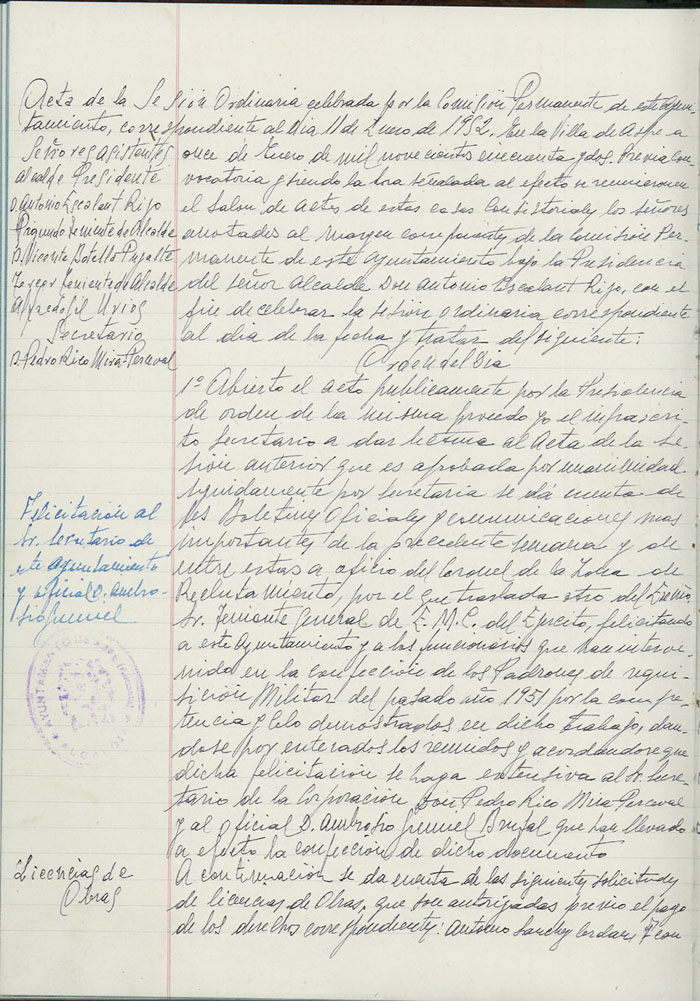 Acta de la Sesión Ordinaria celebrada por la Comisión Permanente de este Ayun-
tamiento, correspondiente al Dia 11 de Enero de 1952. En la Villa de Aspe a
Señores asistentes
Alcalde Presidente
D. Antonio Escalant Rijo
Segundo Teniente de Alcalde
D. Vicente Botella Pujalte
Tercer Teniente de Alcalde
Alfredo Gil Urios
Secretario
D. Pedro Rico Mira-Perceval
once de Enero de mil novecientos cincuenta y dos. Previa con-
vocatoria y siendo la hora señalada al efecto se reunieron en
el Salon de Actos de estas casas Consistoriales los señores
anotados al margen componentes de la Comision Per-
manente de este Ayuntamiento bajo la Presidencia
del señor Alcalde Don Antonio Escalant Rijo, con el
fin de celebrar la sesión ordinaria correspondiente
al dia de la fecha y tratar del siguiente:
Orden del Dia
1º Abierto el acto publicamente por la Presidencia
de orden de la misma procedo yo el infrascri-
to Secretario a dar lectura al Acta de la Se-
sión anterior que es aprobada por unanimidad
Seguidamente por Secretaria se dá cuenta de
los Boletines Oficiales y comunicaciones mas
importantes de la precedente semana y de
entre estas a oficio del Coronel de la Zona de
Reclutamiento, por el que traslada otro del Excmo
Sr. Teniente General de E.M.C. del Ejercito, felicitando
a este Ayuntamiento y a los funcionarios que han interve-
nido en la confección de los Padrones de requi-
sición Militar del pasado año 1951 por la compe-
tencia y celo demostrados en dicho trabajo, dan-
dose por enterados los reunidos y acordandose que
dicha felicitación se haga extensiva al Sr. Secre-
tario de la Corporación Don Pedro Rico Mira-Perceval
y al Oficial D. Ambrosio Gumiel Brufal que han llevado
a efecto la confección de dicho documento
Felicitación al
Sr. Secretario de
este Ayuntamiento
y oficial D. Ambro-
sio Gumiel
AYUNTAMIENTO DE ASPE
Licencias de
Obras
A continuación se da cuenta de las siguientes solicitudes
de licencias de Obras, que son autorizadas previo el pago
de los derechos correspondientes: Antonio Sanchez Cerdan,